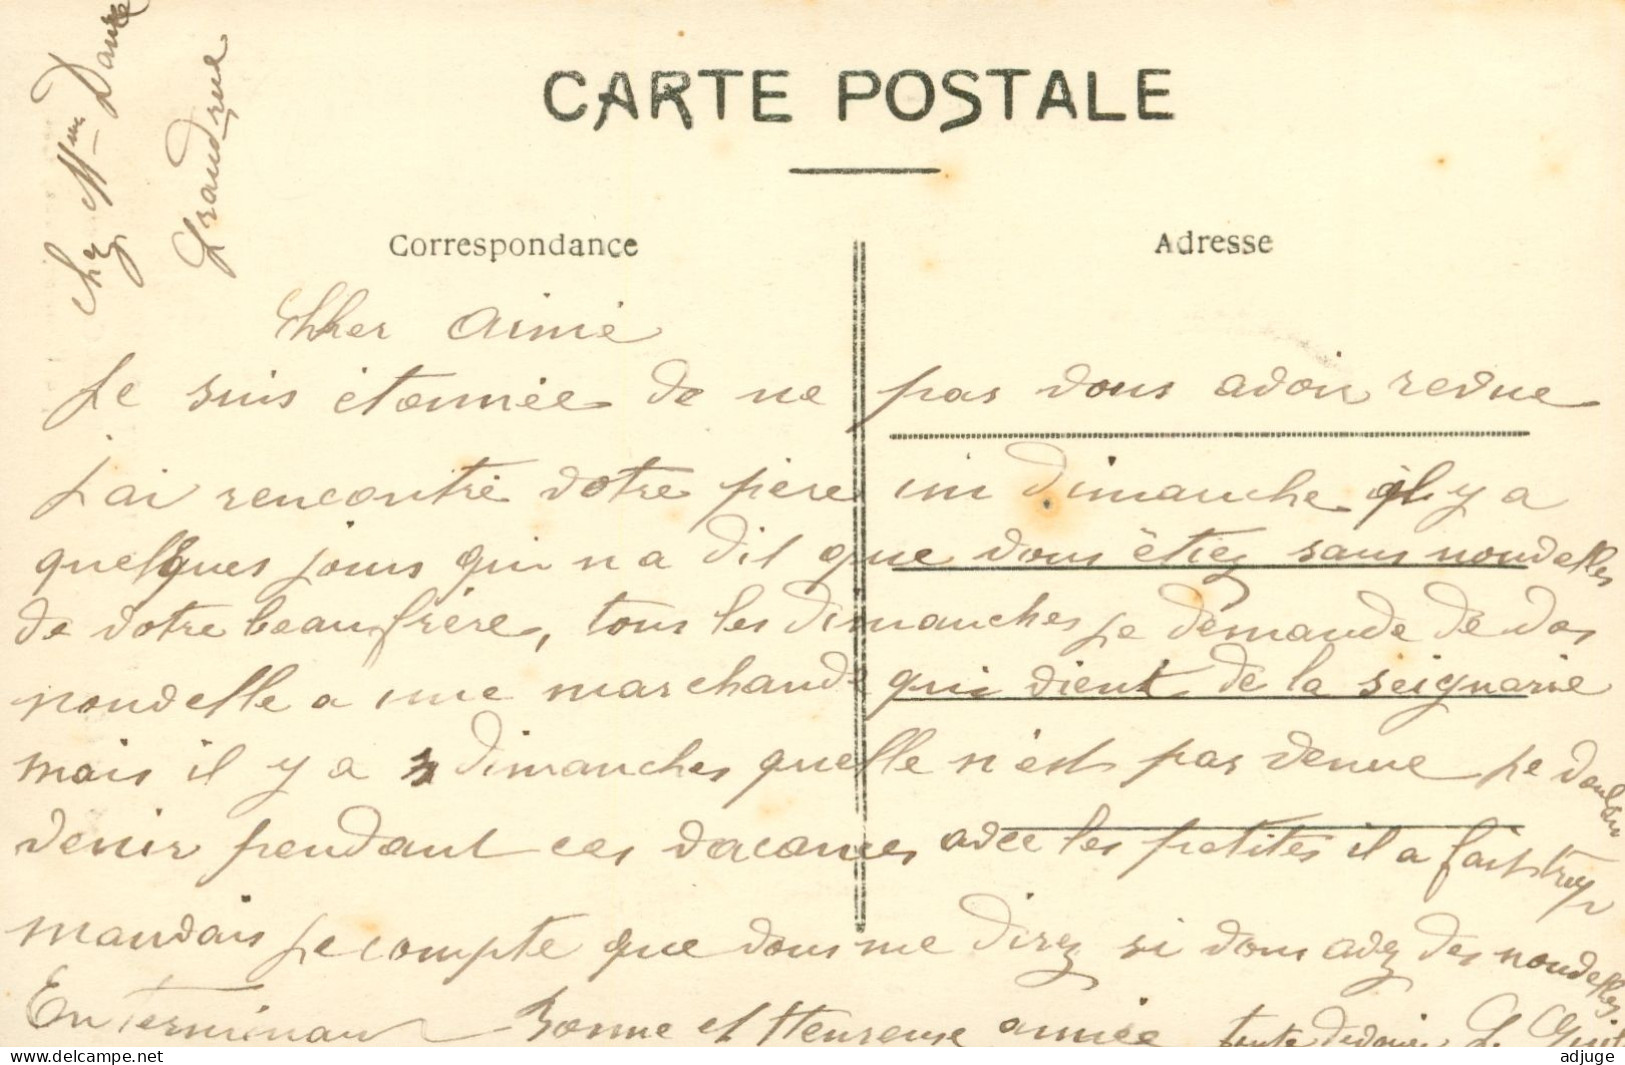 chez Mme
Grand-rue
CARTE POSTALE
Correspondance
Adresse
Chher Aimé
Je suis étonnée de ne pas vous avoir revue
J'ai rencontré votre père un dimanche il y a
quelques jours qui n a dit que vous étiez sans nouvelles
de votre beau frère, tous les dimanches je demande de vos
nouvelle a une marchande qui vient de la seignerie
mais il y a 3 dimanches quelle n'est pas venue je voulais
venir pendant ces vacances avec les petites il a fait trop
mauvais je compte que vous me direz si vous avez des nouvelles
En terminant Bonne et Heureuse année
adjuge